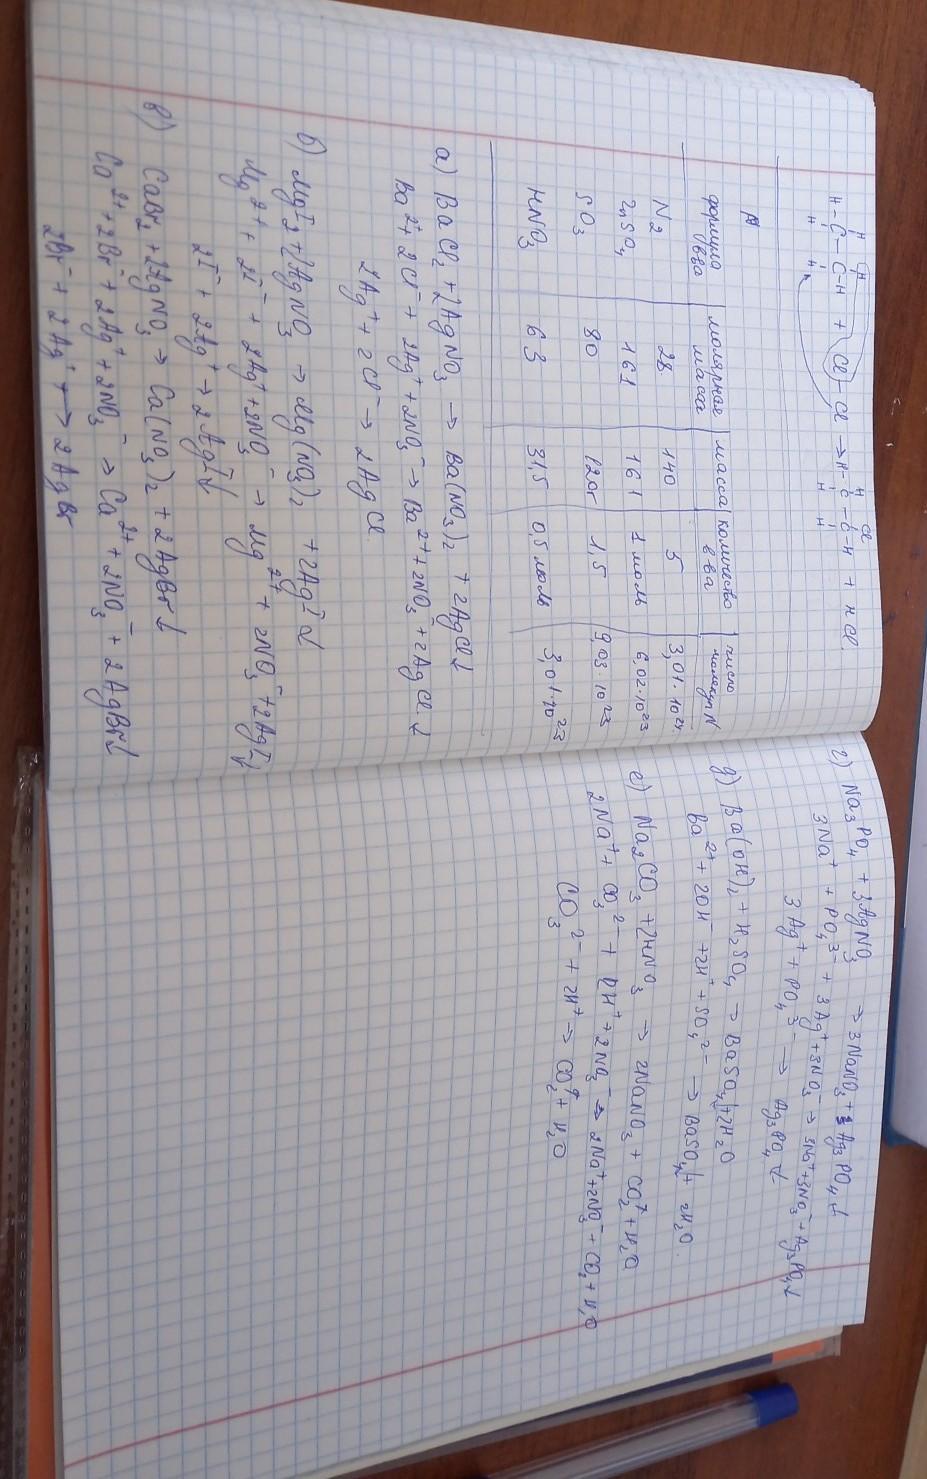 H H
H-C-CH + Cl-Cl → H-C-C-H + HCl
H H
H Cl
H H
формула в-ва | молярная масса | масса | количество в-ва | число молекул N
N₂ | 28 | 140 | 5 | 3,01·10²⁴
ZnSO₄ | 161 | 161 | 1 моль | 6,02·10²³
SO₃ | 80 | 120г | 1,5 | 9,03·10²³
HNO₃ | 63 | 31,5 | 0,5 моль | 3,01·10²³
а) BaCl₂ + 2AgNO₃ → Ba(NO₃)₂ + 2AgCl↓
Ba²⁺ + 2Cl⁻ + 2Ag⁺ + 2NO₃⁻ → Ba²⁺ + 2NO₃⁻ + 2AgCl↓
2Ag⁺ + 2Cl⁻ → 2AgCl
б) MgI₂ + 2AgNO₃ → Mg(NO₃)₂ + 2AgI↓
Mg²⁺ + 2I⁻ + 2Ag⁺ + 2NO₃⁻ → Mg²⁺ + 2NO₃⁻ + 2AgI↓
2I⁻ + 2Ag⁺ → 2AgI↓
в) CaBr₂ + 2AgNO₃ → Ca(NO₃)₂ + 2AgBr↓
Ca²⁺ + 2Br⁻ + 2Ag⁺ + 2NO₃⁻ → Ca²⁺ + 2NO₃⁻ + 2AgBr↓
2Br⁻ + 2Ag⁺ → 2AgBr
г) Na₃PO₄ + 3AgNO₃ → 3NaNO₃ + Ag₃PO₄↓
3Na⁺ + PO₄³⁻ + 3Ag⁺ + 3NO₃⁻ → 3Na⁺ + 3NO₃⁻ + Ag₃PO₄↓
3Ag⁺ + PO₄³⁻ → Ag₃PO₄↓
д) Ba(OH)₂ + H₂SO₄ → BaSO₄↓ + 2H₂O
Ba²⁺ + 2OH⁻ + 2H⁺ + SO₄²⁻ → BaSO₄↓ + 2H₂O.
е) Na₂CO₃ + 2HNO₃ → 2NaNO₃ + CO₂↑ + H₂O
2Na⁺ + CO₃²⁻ + 2H⁺ + 2NO₃⁻ → 2Na⁺ + 2NO₃⁻ + CO₂ + H₂O
CO₃²⁻ + 2H⁺ → CO₂↑ + H₂O